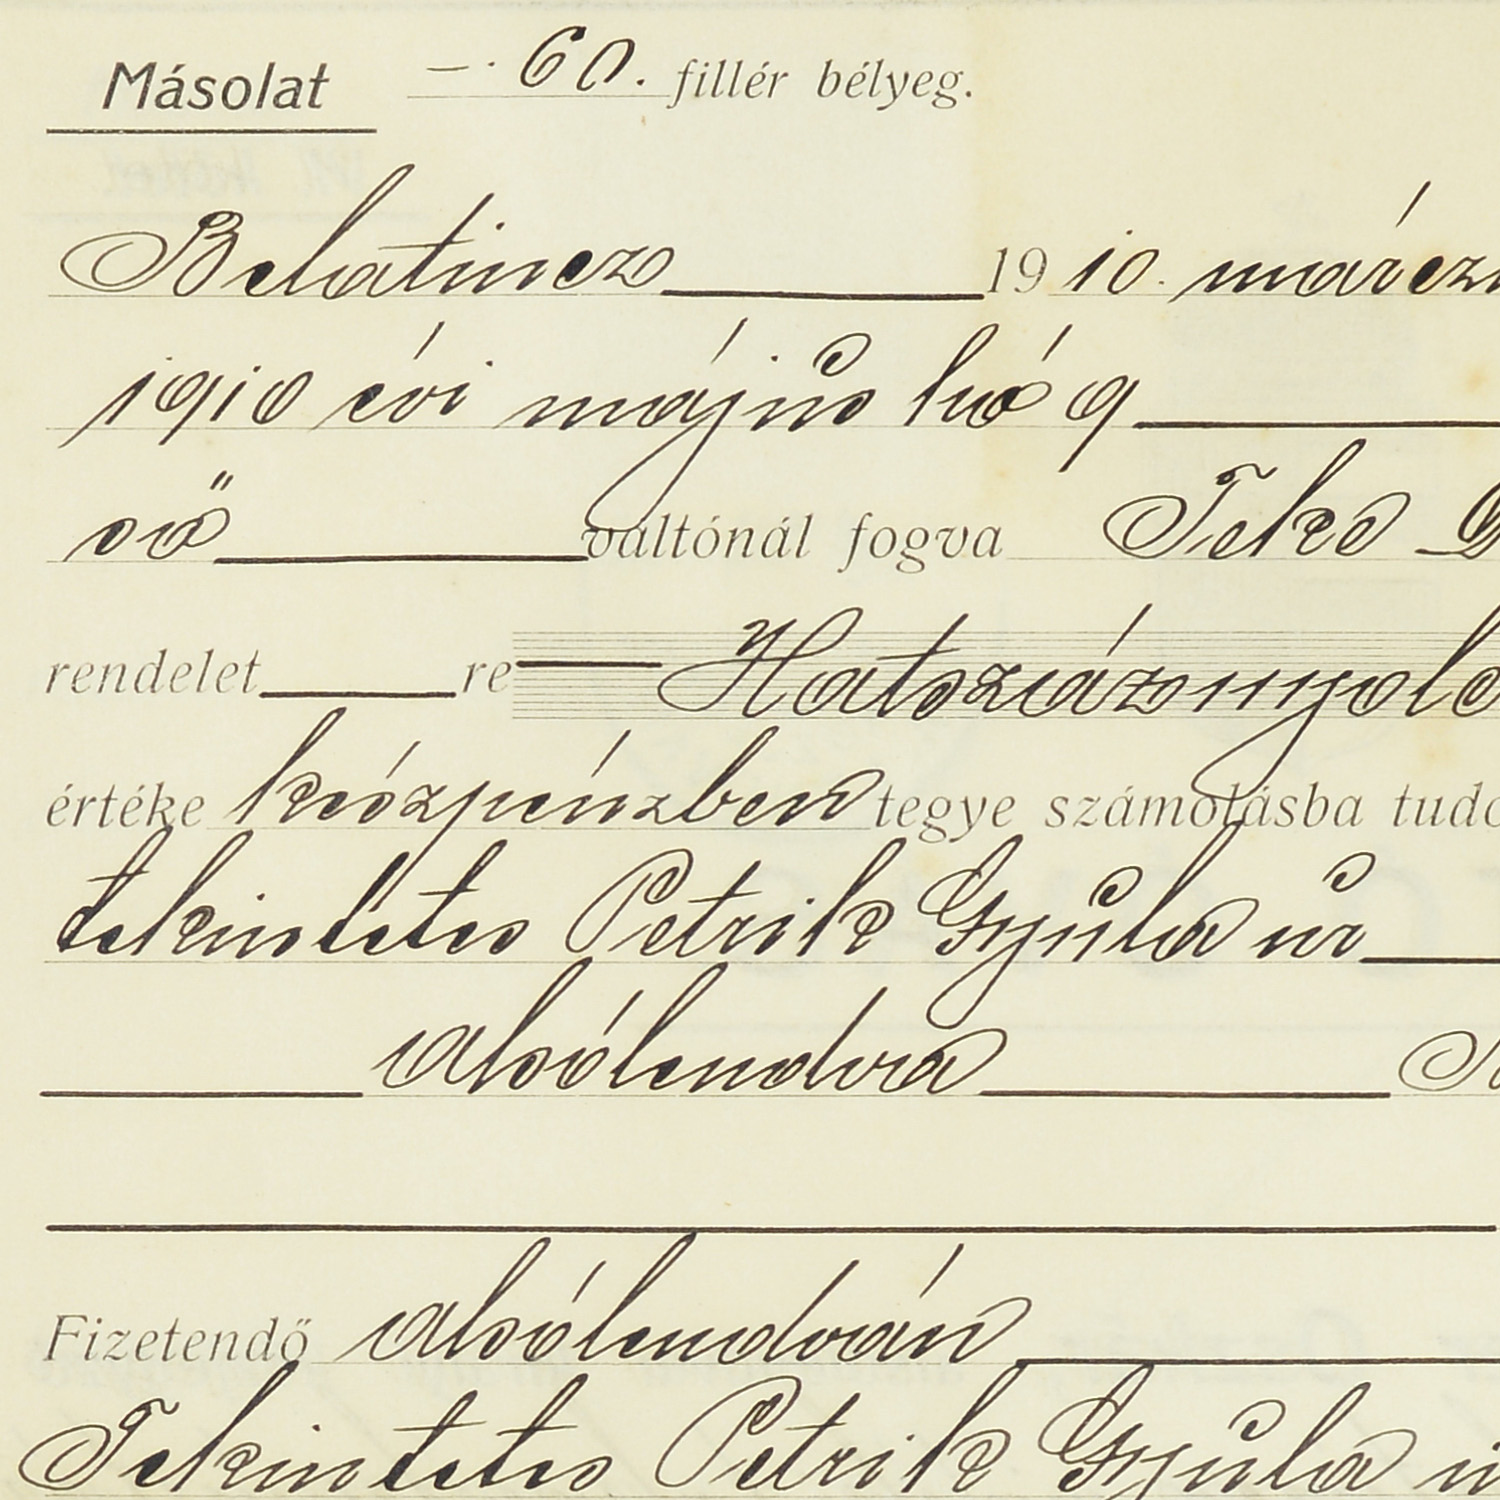 Másolat —. 60. fillér bélyeg.
Belatincz 19 10. márczi
1910 évi május hó 9
ső váltónál fogva Teke
rendelet re Hatszáznyolc
értéke készpénzben tegye számolásba tudó
tekintetes Petrik Gyula úr
Alsólendva
Fizetendő Alsólendván
Tekintetes Petrik Gyula ú